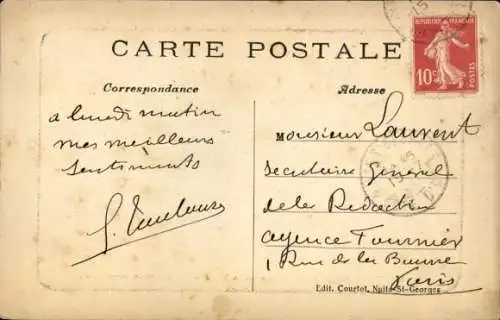 CARTE POSTALE
REPUBLIQUE FRANÇAISE
10c
POSTES
Correspondance
Adresse
a lundi matin
mes meilleurs
sentiments
Monsieur Laurent
Secretaire General
de la Redaction
agence Fournier
1 Rue de la Bourse
Paris
Edit. Courtot, Nuits-St-Georges